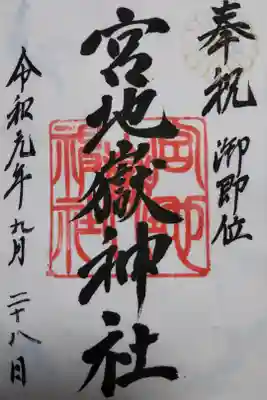 奉祝 御即位
宮地嶽神社
令和元年九月二十八日